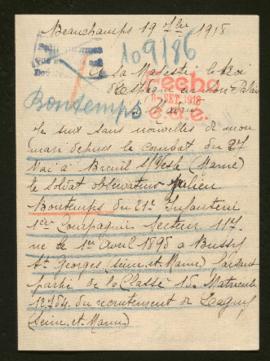 Beauchamps 19 7bre 1918
109186
A sa Majesté le Roi
Hecho
Bontemps
Sire
Je suis sans nouvelles de mon
mari depuis le combat du 27
Mai à Breuil s/Vesle (Marne)
le soldat observateur Julien
Bontemps du 21e Infanterie
1re Compagnie Secteur 117.
né le 1er Avril 1895 à Bussy
St Georges (Seine et Marne) faisant
partie de la Classe 15. Matricule
No 754 du recrutement de
(Seine et Marne)